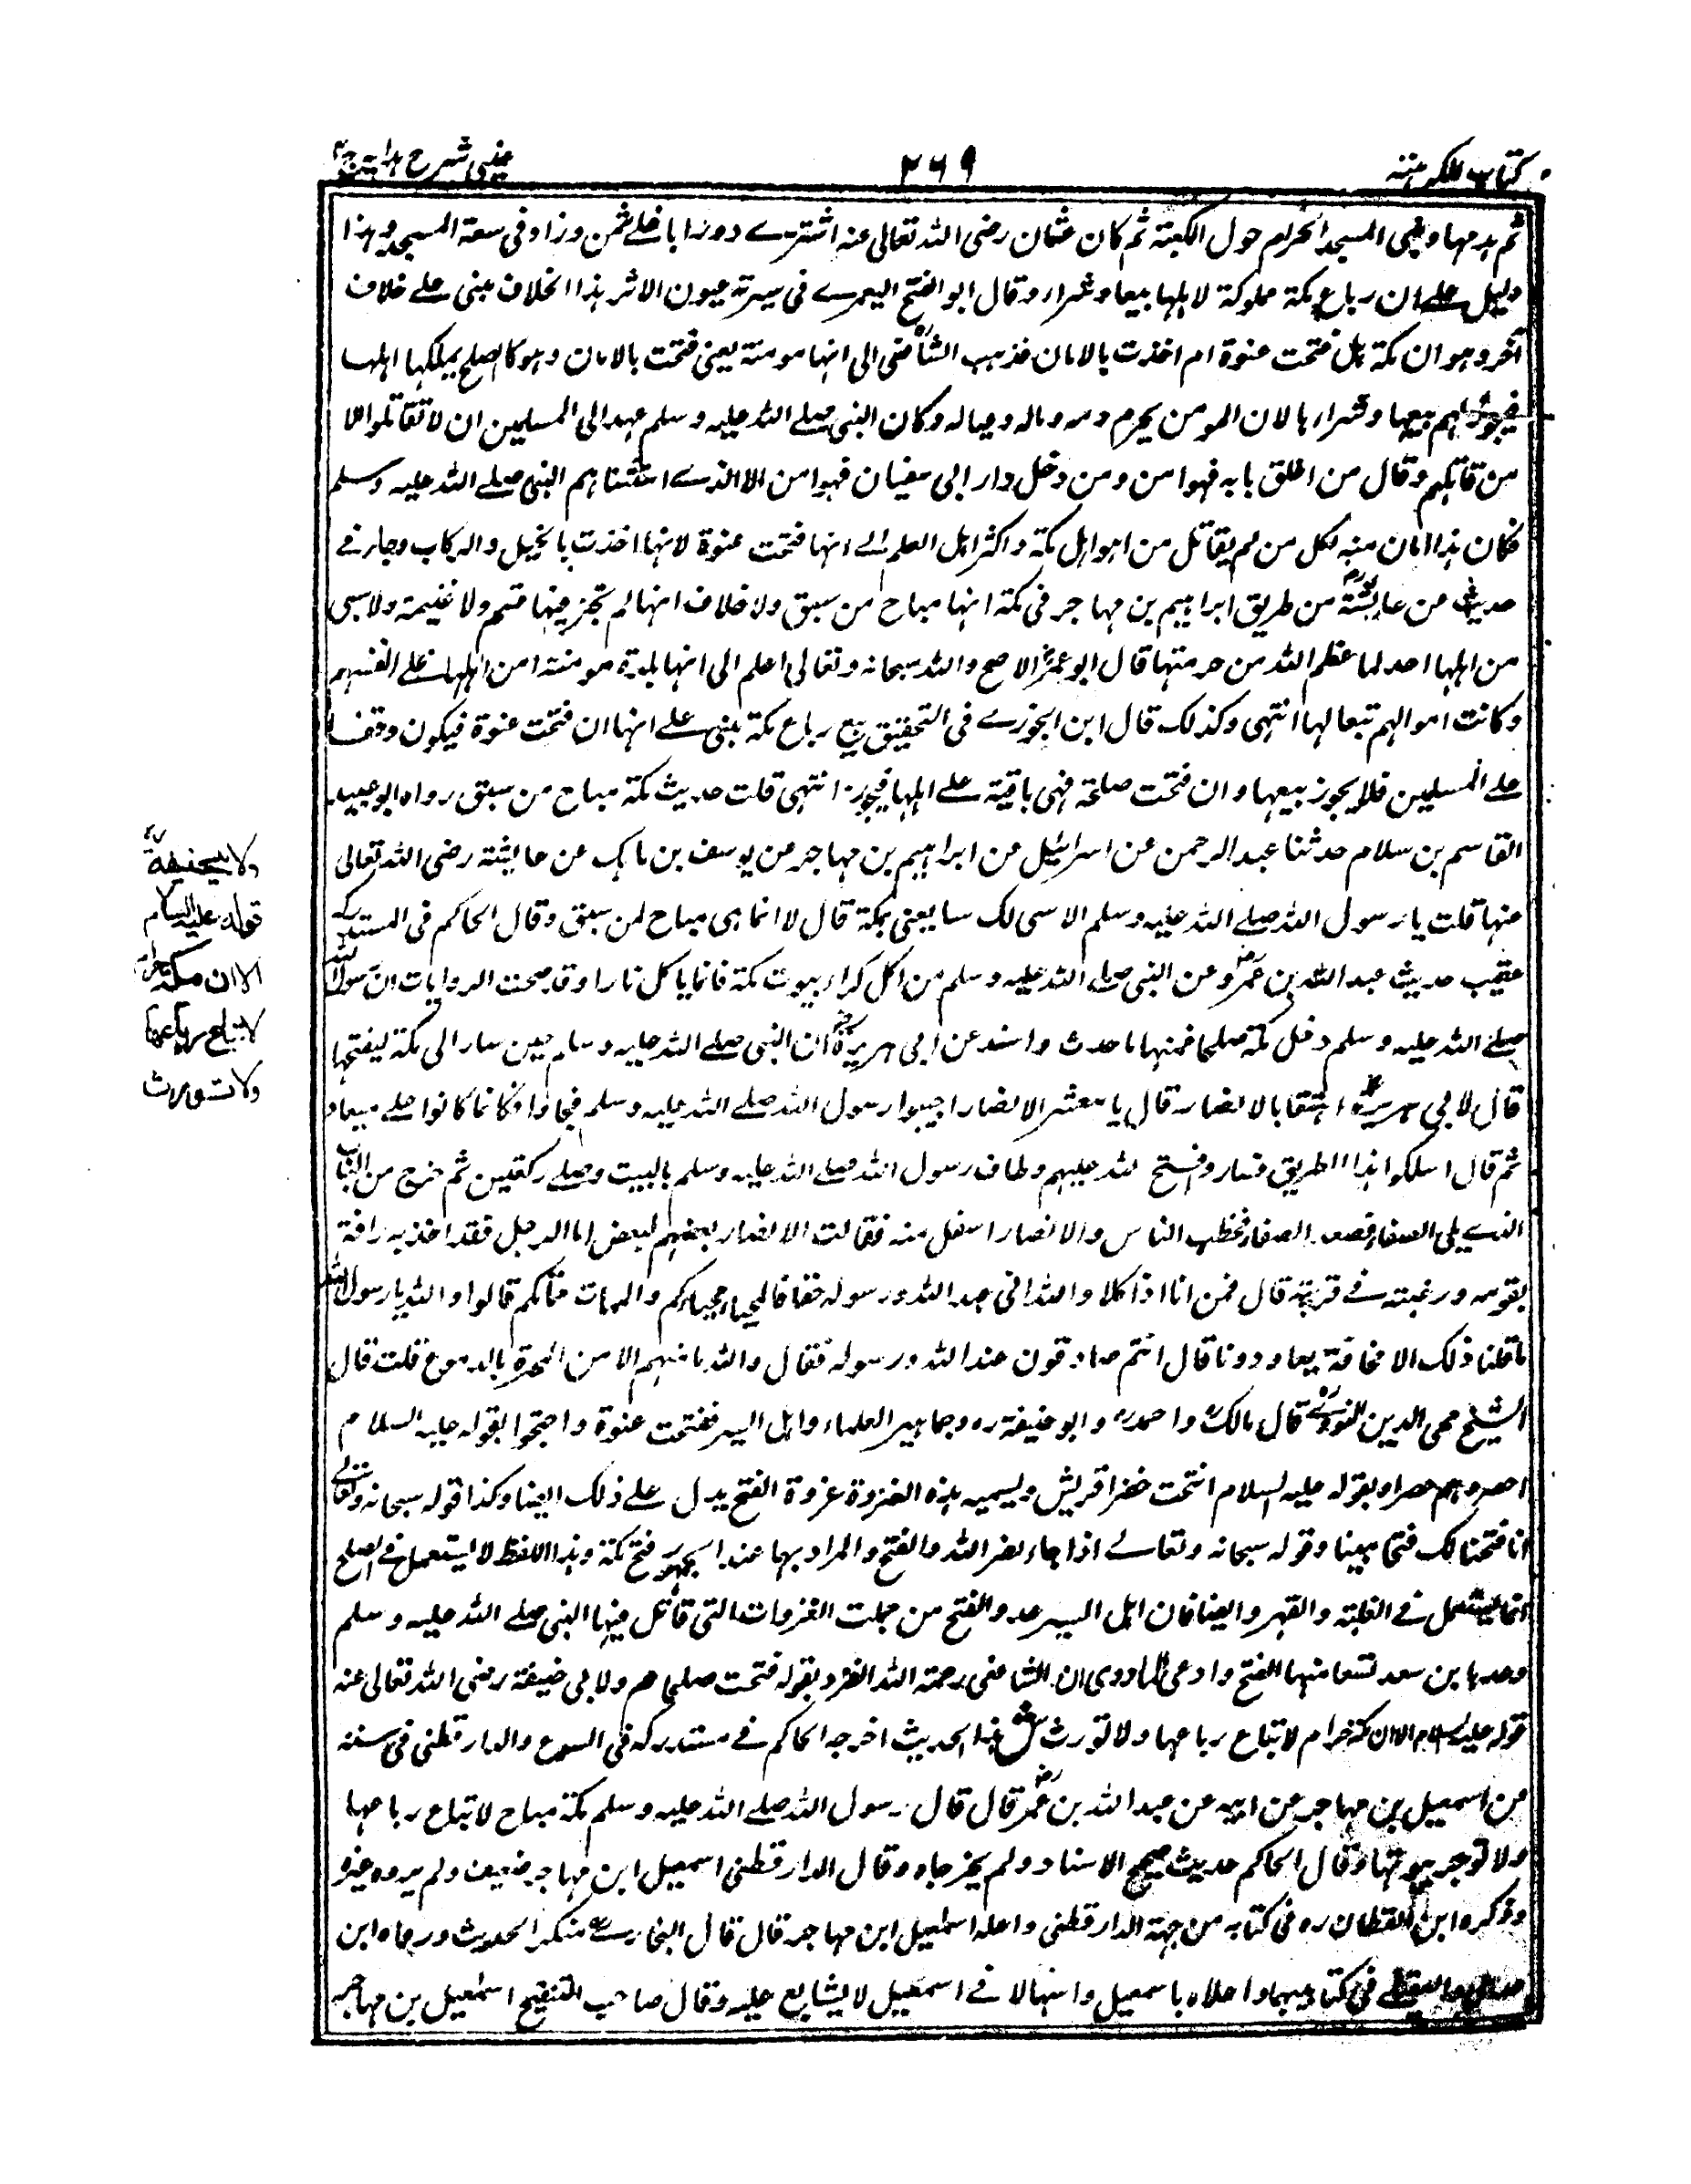 كتاب الكراهية
٢٦٩
عينى شرح هداية ج ٤
ثم يهدمها ويبنى المسجد الحرام حول الكعبة ثم كان عثمان رضى الله تعالى عنه اشترى دورا باغلى ثمن وزاد فى سعة المسجد وهذا
دليل على ان رباع مكة مملوكة لاهلها بيعا وشراء وقال ابو الفتح اليعمرى فى سيرته عيون الاثر هذا الخلاف مبنى على خلاف
آخر وهو ان مكة هل فتحت عنوة ام اخذت بالامان فذهب الشافعى الى انها مومنة يعنى فتحت بالامان وهو كالصلح يملكها اهلها
فيجوز لهم بيعها وشراءها لان المومن يحرم دمه وماله وعياله وكان النبى صلى الله عليه وسلم عهد الى المسلمين ان لا تقاتلوا الا
من قاتلكم وقال من اغلق بابه فهو امن ومن دخل دار ابى سفيان فهو امن الا الذى استثناهم النبى صلى الله عليه وسلم
فكان هذا امان منه لكل من لم يقاتل من اهل مكة واكثر اهل العلم الى انها فتحت عنوة لانها اخذت بالخيل والركاب وجاء فى
حديث عن عايشة من طريق ابراهيم بن مهاجر فى مكة انها مباح من سبق ولا خلاف انها لم تجز فيها قسم ولا غنيمة ولا سبى
من اهلها احد لما عظم الله من حرمتها قال ابو عمر الاصح والله سبحانه وتعالى اعلم الى انها بلدة مومنة امن اهلها على انفسهم
وكانت اموالهم تبعا لها انتهى وكذلك قال ابن الجوزى فى التحقيق بيع رباع مكة يبنى على انها ان فتحت عنوة فيكون وقفا
على المسلمين فلا يجوز بيعها وان فتحت صلحة فهى باقية على اهلها فيجوز انتهى قلت حديث مكة مباح من سبق رواه ابو عبيد
القاسم بن سلام حدثنا عبد الرحمن عن اسرائيل عن ابراهيم بن مهاجر عن يوسف بن ماهك عن عايشة رضى الله تعالى
عنها قلت يا رسول الله صلى الله عليه وسلم الا يعنى بمكة قال لا انما هى مباح لمن سبق وقال الحاكم فى المستدرك
عقيب حديث عبد الله بن عمرو عن النبى صلى الله عليه وسلم من اكل كراء بيوت مكة فانما ياكل نارا وقد صحت الروايات ان رسول الله
صلى الله عليه وسلم دخل مكة صلحا فمنها ما حدث واسند عن ابى هريرة ان النبى صلى الله عليه وسلم حين سار الى مكة ليفتحها
قال لابى هريرة اهتف بالانصار قال يا معشر الانصار اجيبوا رسول الله صلى الله عليه وسلم فجاؤا فكانما كانوا على ميعاد
ثم قال اسلكوا هذا الطريق فسار وفتح الله عليهم وطاف رسول الله صلى الله عليه وسلم بالبيت وصلى ركعتين ثم خرج من الباب
الذى يلى الصفا فصعد الصفا فخطب الناس والانصار اسفل منه فقالت الانصار بعضهم لبعض اما الرجل فقد اخذته رافة
بقومه ورغبته فى قريته قال فمن انا اذا كلا والله انى عبد الله ورسوله حقا فالمحيا محياكم والممات مماتكم قالوا والله يا رسول الله
ما قلنا ذلك الا مخافة قال انتم صادقون عند الله ورسوله فقال والله ما منهم الا من بالدموع قلت قال
الشيخ محى الدين النووى قال مالك واحمد وابو حنيفة ره وجماهير العلماء واهل السير فتحت عنوة واحتجوا بقوله عليه السلام
احصدوهم حصدا وبقوله عليه السلام خضرا قريش وتسميه هذه الغزوة غزوة الفتح يدل على ذلك ايضا وكذا قوله سبحانه وتعالى
انا فتحنا لك فتحا مبينا وقوله سبحانه وتعالى اذا جاء نصر الله والفتح والمراد بها عند الجمهور فتح مكة وهذا اللفظ لا يستعمل فى الصلح
انما يستعمل فى الغلبة والقهر وايضا فان اهل السير عدوا الفتح من جملت الغزوات التى قاتل فيها النبى صلى الله عليه وسلم
وعدها بن سعد تسعا منها الفتح وادعى الماوردى ان الشافعى رحمة الله انفرد بقوله فتحت صلحا م ولابى حنيفة رضى الله تعالى عنه
قوله عليه السلام الا ان مكة حرام لا تباع رباعها ولا تورث ش هذا الحديث اخرجه الحاكم فى مستدركه فى البيوع والدارقطنى فى سننه
من اسمعيل بن مهاجر عن ابيه عن عبد الله بن عمر قال قال رسول الله صلى الله عليه وسلم مكة مباح لا تباع رباعها
ولا توجر بيوتها وقال الحاكم حديث صحيح الاسناد ولم يخرجاه وقال الدارقطنى اسمعيل ابن مهاجر ضعيف ولم يروه غيره
وذكره ابن القطان ره فى كتابه من جهة الدارقطنى واعله اسمعيل ابن مهاجر قال قال البخارى منكر الحديث ورواه ابن
عدى والعقيلى فى كتابيهما واعلاه باسمعيل وانهما لا فى اسمعيل لا يتابع عليه وقال صاحب التنقيح اسمعيل بن مهاجر
ولابيحنيفة
قوله عليه السلام
الا ان مكة حرام
لا تباع رباعها
ولا تورث